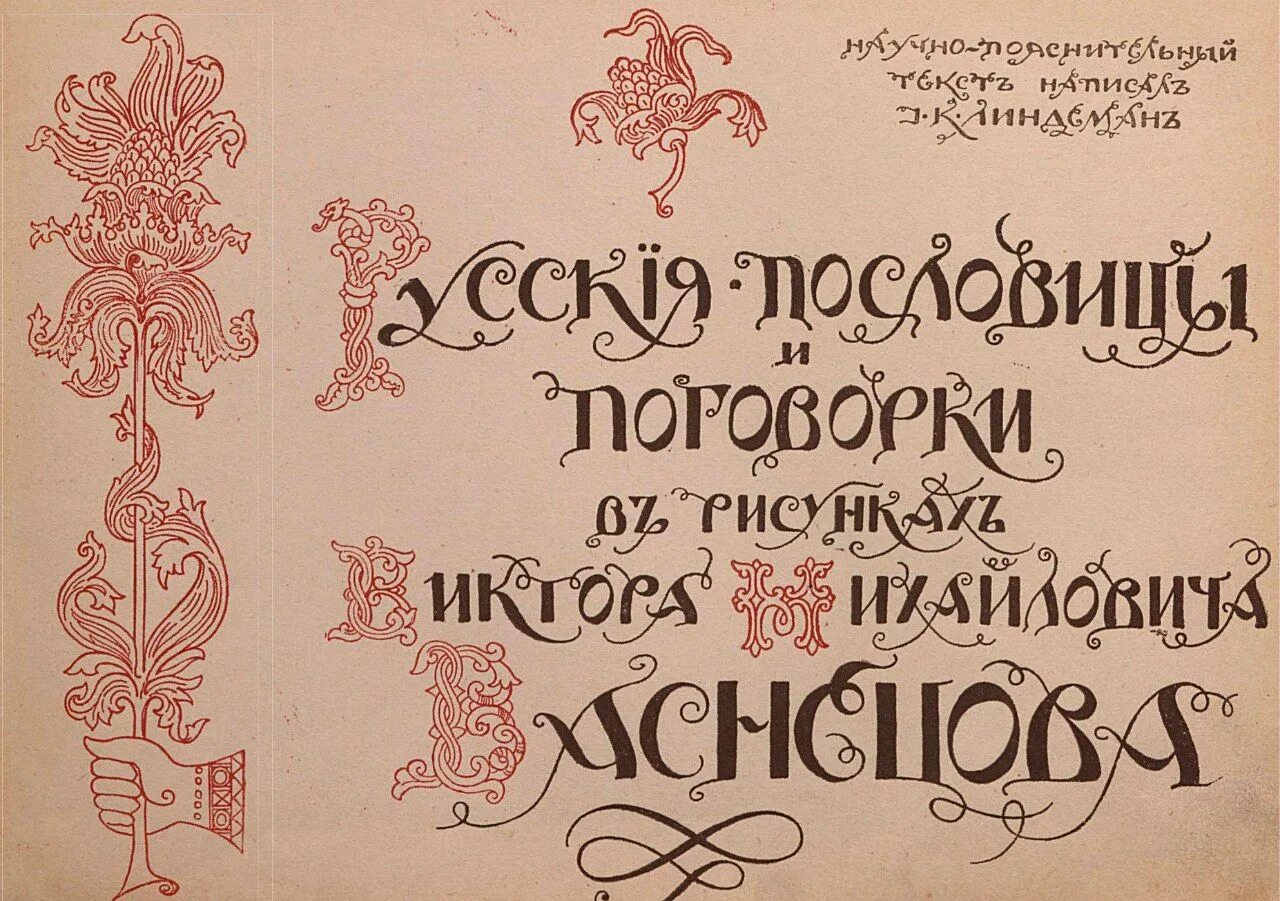 научно-пояснительный
текстъ написалъ
І. К. Линдеманъ
Русскія · пословицы
и
поговорки
въ рисункахъ
Виктора Михайловича
Васнецова